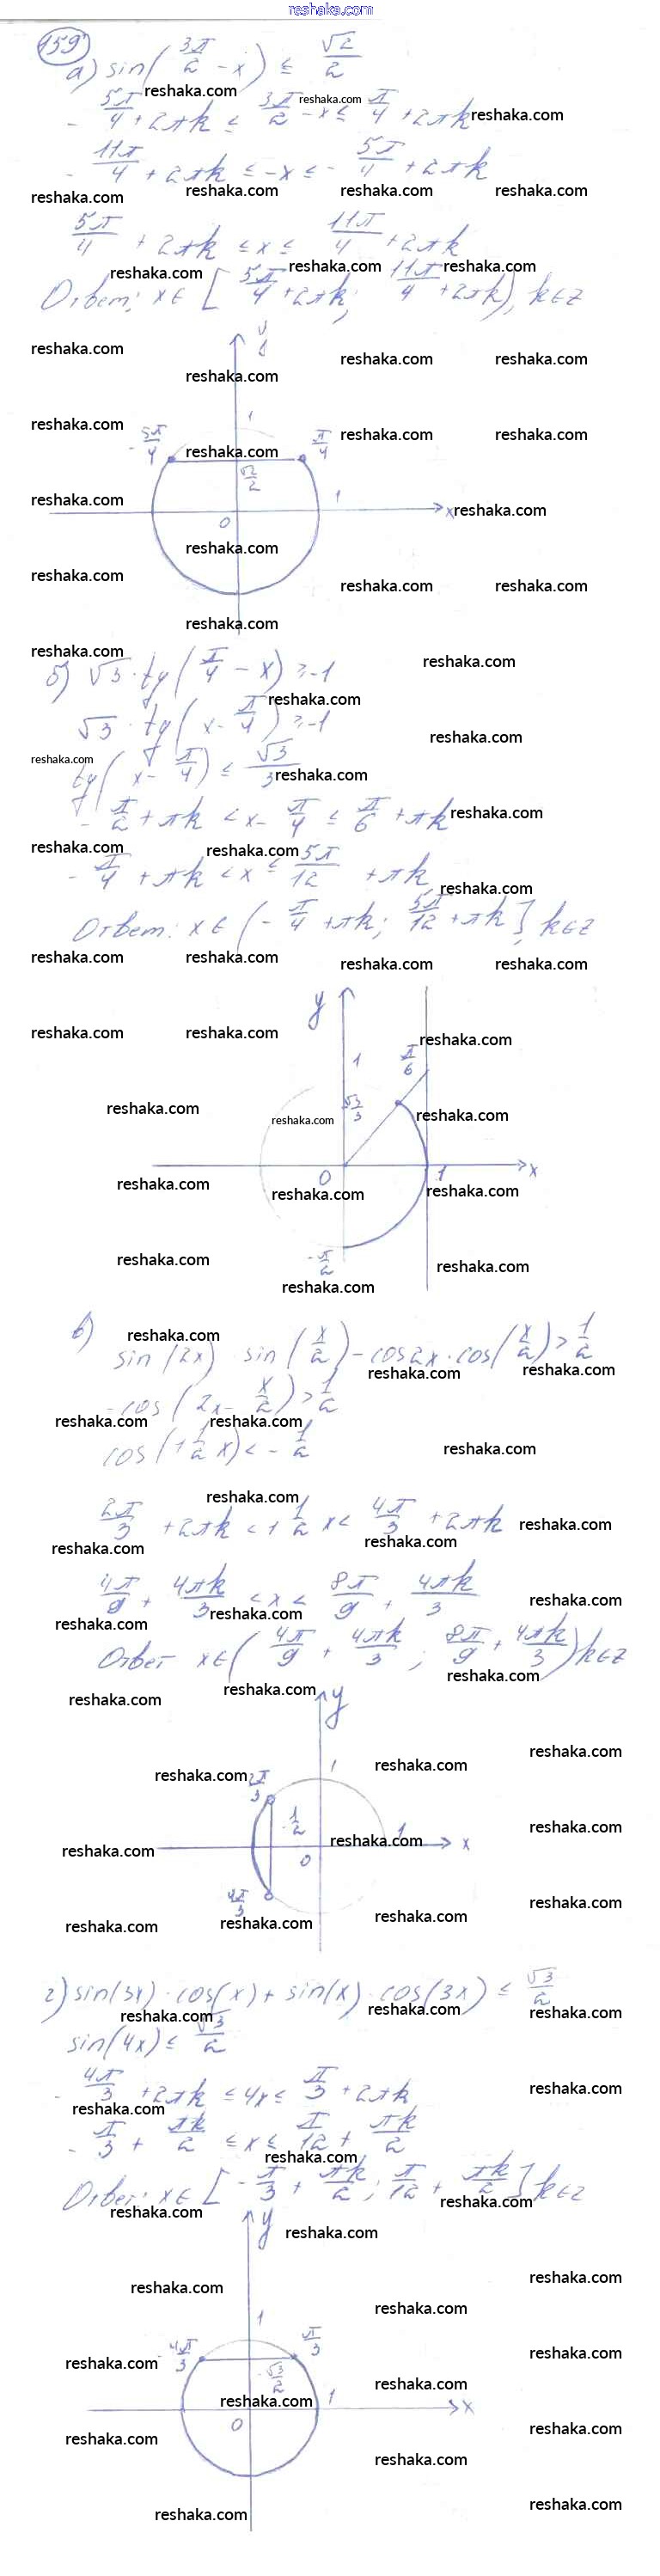 reshaka.com
159
а) sin(3π/2 - x) ≤ √2/2
- 5π/4 + 2πk ≤ 3π/2 - x ≤ π/4 + 2πk
- 11π/4 + 2πk ≤ -x ≤ - 5π/4 + 2πk
5π/4 + 2πk ≤ x ≤ 11π/4 + 2πk
Ответ: x ∈ [5π/4 + 2πk; 11π/4 + 2πk), k ∈ Z
1
- 5π/4
π/4
√2/2
1
0
x
б) √3 · tg(π/4 - x) ≥ -1
√3 · tg(x - π/4) ≥ -1
tg(x - π/4) ≤ √3/3
- π/2 + πk < x - π/4 ≤ π/6 + πk
- π/4 + πk < x ≤ 5π/12 + πk
Ответ: x ∈ (- π/4 + πk; 5π/12 + πk], k ∈ Z
y
1
π/6
√3/3
0
1
x
- π/2
в)
sin(2x) sin(x/2) - cos2x · cos(x/2) > 1/2
- cos(2x - x/2) > 1/2
cos(1 1/2 x) < - 1/2
2π/3 + 2πk < 1 1/2 x < 4π/3 + 2πk
4π/9 + 4πk/3 < x < 8π/9 + 4πk/3
Ответ x ∈ (4π/9 + 4πk/3; 8π/9 + 4πk/3) k ∈ Z
y
1
2π/3
- 1/2
1
x
0
4π/3
г) sin(3x) · cos(x) + sin(x) · cos(3x) ≤ √3/2
sin(4x) ≤ √3/2
- 4π/3 + 2πk ≤ 4x ≤ π/3 + 2πk
- π/3 + πk/2 ≤ x ≤ π/12 + πk/2
Ответ: x ∈ [- π/3 + πk/2; π/12 + πk/2] k ∈ Z
y
1
- 4π/3
π/3
√3/2
1
x
0